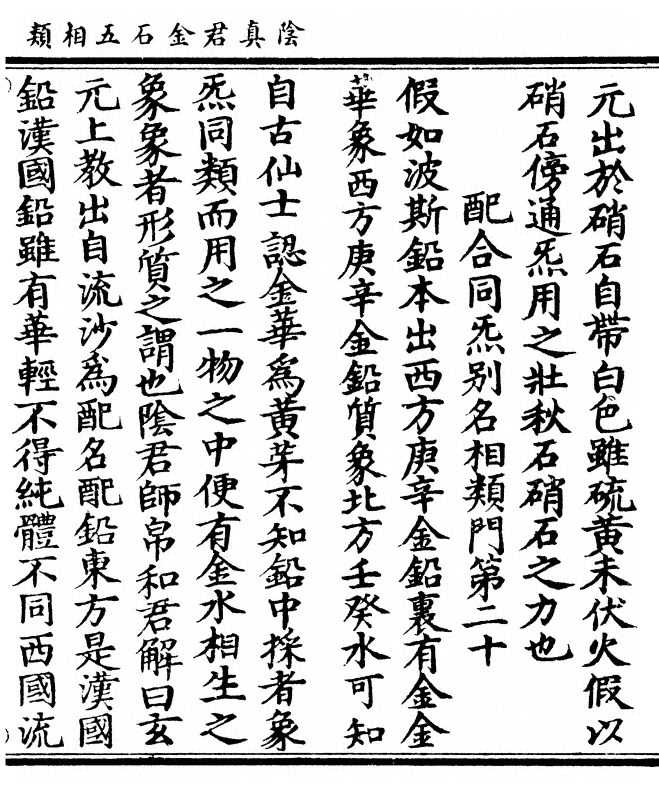 陰真君金石五相類
元出於硝石自帶白色雖硫黃未伏火假以
硝石傍通炁用之壯秋石硝石之力也
配合同炁別名相類門第二十
假如波斯鉛本出西方庚辛金鉛裏有金金
華象西方庚辛金鉛質象北方壬癸水可知
自古仙士認金華爲黃芽不知鉛中採者象
炁同類而用之一物之中便有金水相生之
象象者形質之謂也陰君師帛和君解曰玄
元上教出自流沙爲配名配鉛東方是漢國
鉛漢國鉛雖有華輕不得純體不同西國流